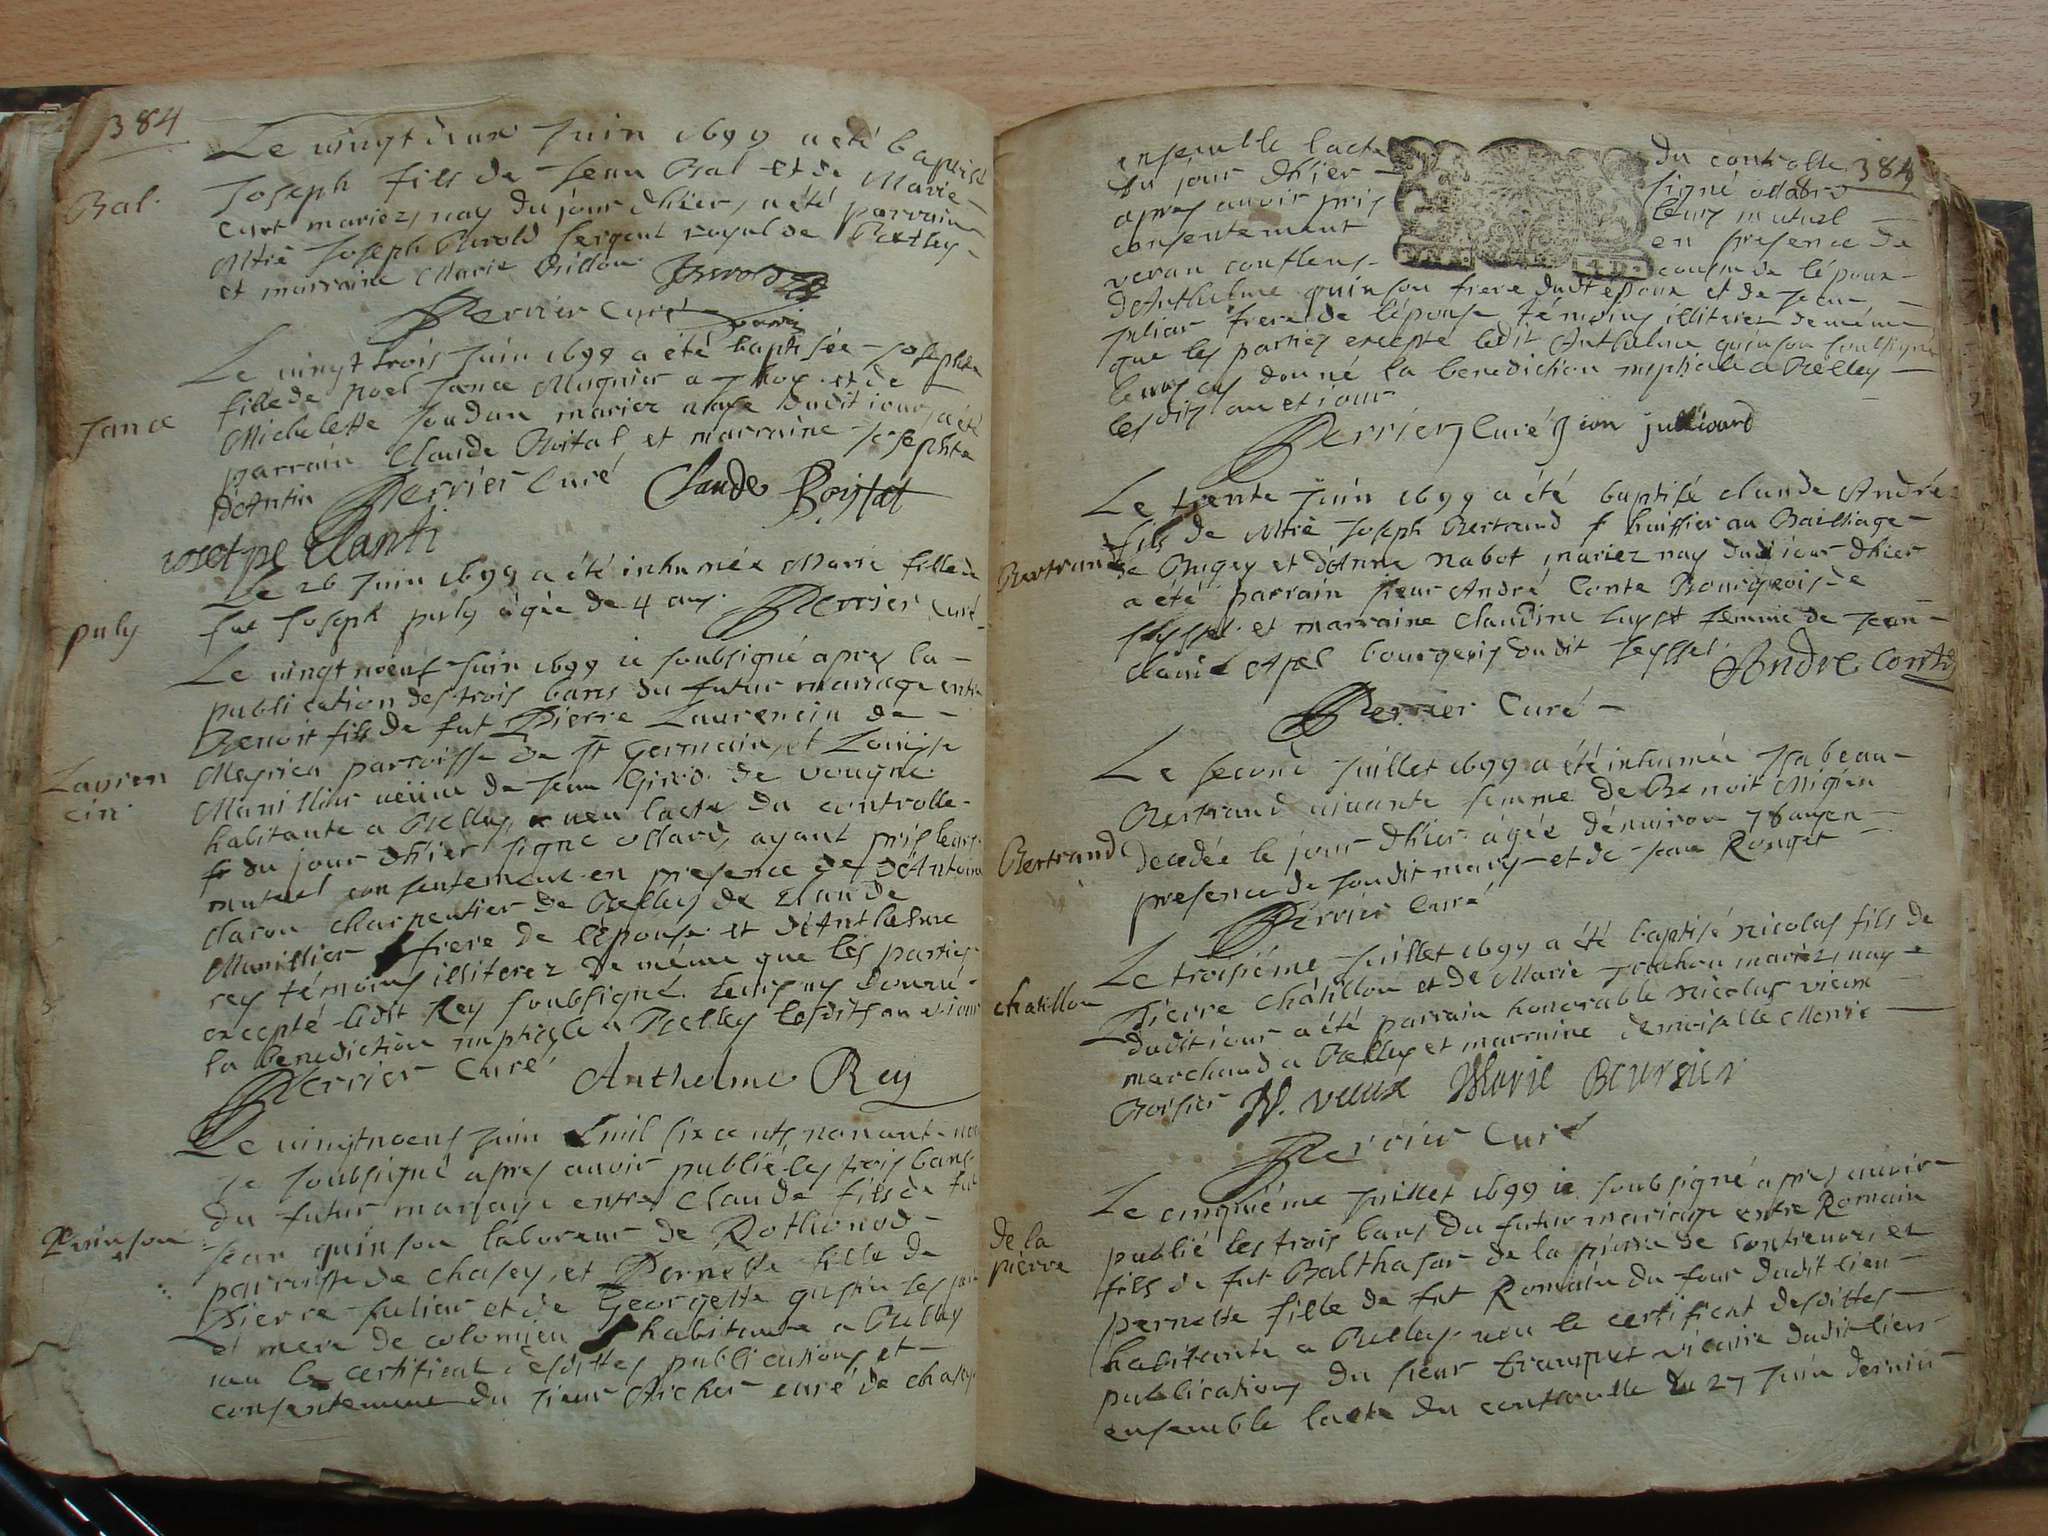 384
Le vingt deux Juin 1699 a été baptisé
Bal.
Joseph fils de Jean Bal et de Marie
Curt mariez, nay du jour d'hier, a été parrain
Mtre Joseph sergent royal de Belley
et marraine Marie Billon
Perrier Curé parrin
Le vingt trois Juin 1699 a été baptisée Josephte
Jance
fille de Noel Jance Mugnier a et de
Michelette Joudan mariez naye dudit jour, a été
parrain Claude Boital et marraine Josephte
d'Antin Perrier Curé Claude Boystat
Le 26 Juin 1699 a été inhumée Marie fille de
puly
fut Joseph puly âgée de 4 ans. Perrier Curé
Le vingt noeuf Juin 1699 je soubsigné apres la
publication des trois bans du futur mariage entre
Benoit fils de fut Pierre Laurencin de
Lauren
cin
Meyrieu parroisse de St Germain, et Louise
Manillier veuve de Jean Girod de Vougne
habitante a Belley, veu lacte du controlle
du jour d'hier signé Ollard, ayant pris leurs
mutuel consentement en presence de d'Antoine
Claron charpentier de Belley de Claude
Manillier frere de l'épouse et d'Anthelme
rey témoins illiterez de méme que les parties
excepté ledit Rey soubsigné. leurs ay donné
la benediction nuptiale a Belley lesdits an et jour
Perrier Curé Anthelme Rey
Le vingtnoeuf Juin mil six cents nonante
Je soubsigné apres auoir publié les trois bans
du futur mariage entre Claude fils de fut
Quinson
Jean quinson laboreur de Rothonod
parroisse de Chasey, et Pernette fille de
Pierre Juliar et de Georgette les
et mere de Colomieu habitante a Belley
veu le certificat desdittes publications et
consentement du sieur Archer curé de Chasey
384
ensemble lacte du controlle
du jour d'hier signé Ollard
apres auoir pris leurs mutuel
consentement en presence de
veran cousin de lépoux
d'Anthelme quinson frere dudt époux et de Jean
Juliar frere de l'épouse témoins illiterez de méme
que les parties excepté ledit Anthelme quinson soubsigné
leurs ay donné la benediction nuptiale a Belley
lesdits an et jour
Perrier Curé
Le trente Juin 1699 a été baptisé Claude André
fils de Mtre Joseph Bertrand huissier au Bailliage
Bertrand
de Bugey et d'Anne Nabot mariez nay dudt jour d'hier
a été parrain sieur André Conte Bourgeois de
Seyssel et marraine Claudine Luyset femme de Jean
Claude bourgeois dudit Seyssel. André Conte
Perrier Curé
Le second Juillet 1699 a été inhumée Isabeau
Bertrand viuante femme de Benoit Migieu
Bertrand
decedée le jour d'hier âgée d'enuiron 78 ans en
presence de soudit mary et de Jean Ronget
Perrier Curé
Le troisiéme Juillet 1699 a été baptisé Nicolas fils de
Chatillon
Pierre Châtillon et de Marie mariez, nay
dudit jour a été parrain honorable Nicolas vieux
marchand a Belley et marraine demoiselle Marie
Borsier N. vieux Marie Boursier
Perrier Curé
Le cinquiéme Juillet 1699 je soubsigné apres auoir
de la
pierre
publié les trois bans du futur mariage entre Romain
fils de fut Balthasar de la pierre de Contrevoz, et
pernette fille de fut Romain du four dudit lieu
habitante a Belley. veu le certificat desdittes
publications du sieur vicaire dudit lieu
ensemble lacte du controulle du 27 Juin dernier